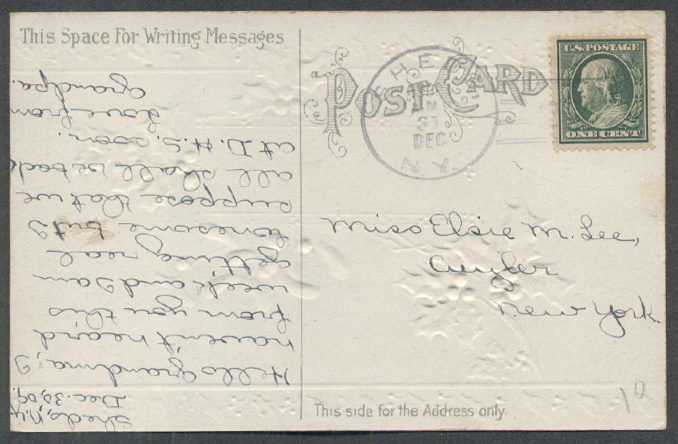 This Space For Writing Messages
POST CARD
U.S. POSTAGE
ONE CENT
SHED
M
31
DEC
N.Y.
Miss Elsie M. Lee,
Cuyler
New York.
This side for the Address only.
10
Sheds, N.Y.
Dec. 30, 09.
Hello Grandma, I
haven't heard
from you this
week and I am
getting real
lonesome but I
suppose that we
all shall be back
at D. H. S. soon.
Love from
Grandpa.